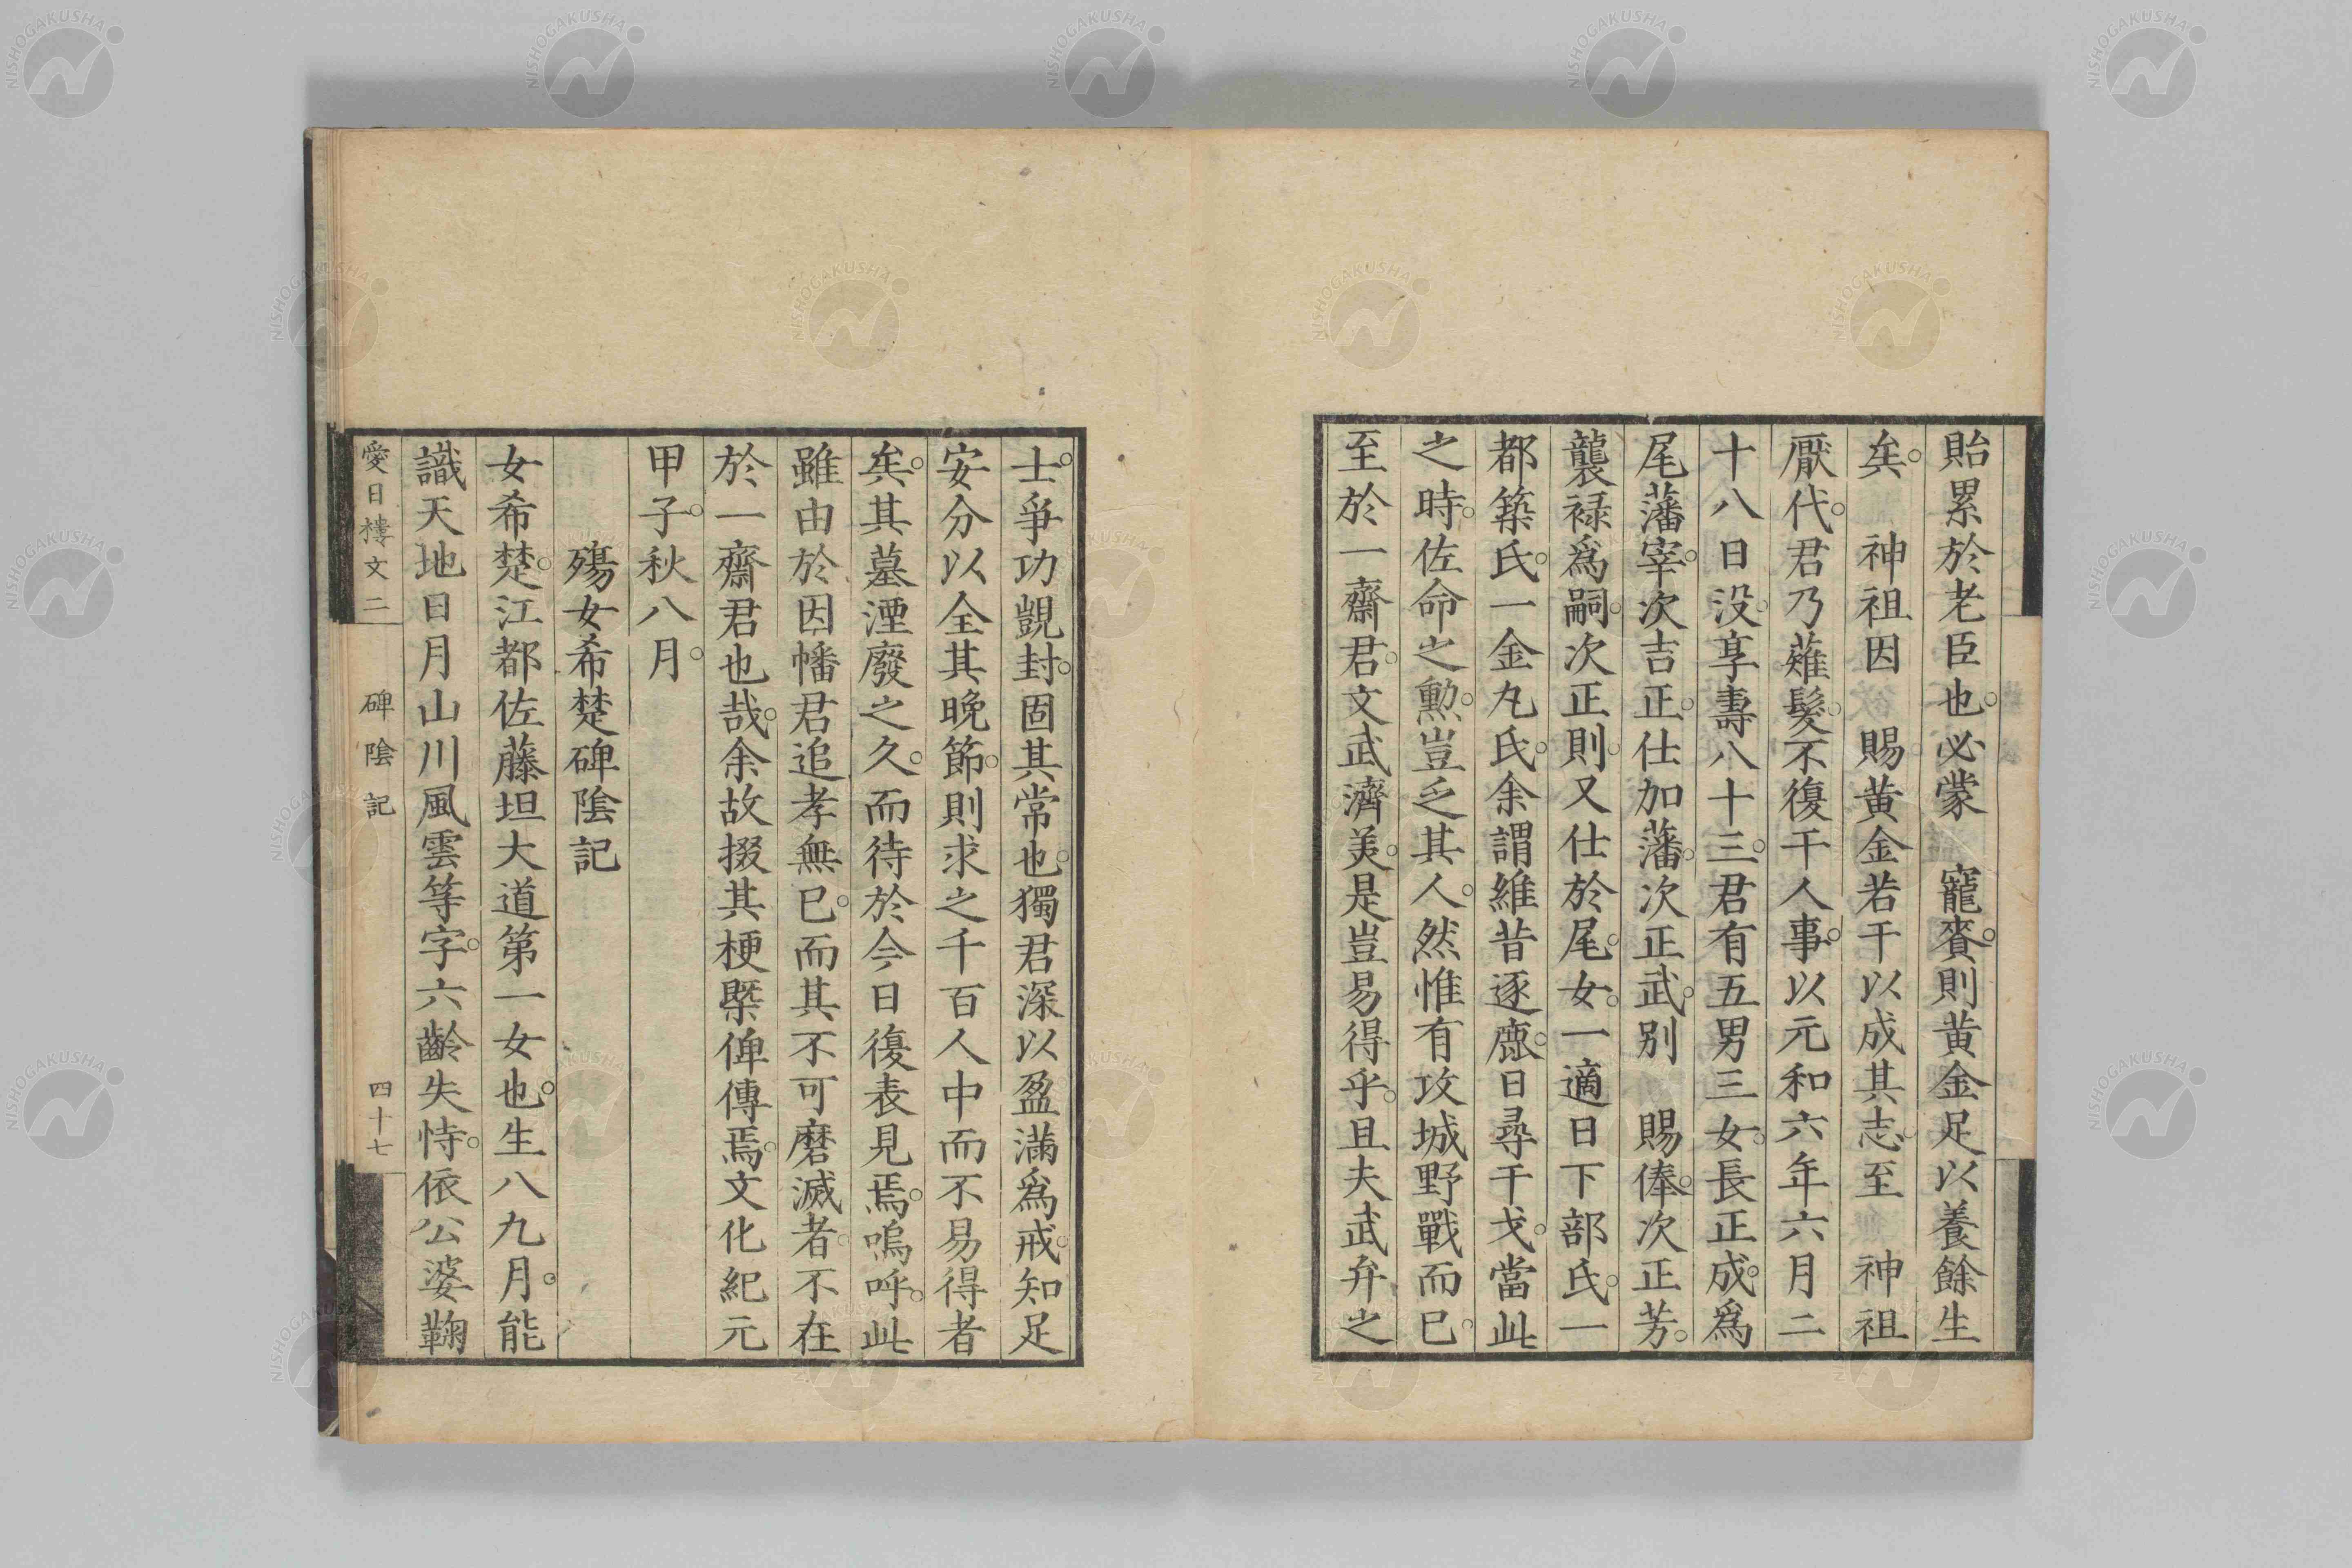 貽累於老臣也。必蒙　寵賚。則黄金足以養餘生
矣。　神祖因　賜黄金若干以成其志。至　神祖
厭代。君乃薙髮。不復干人事。以元和六年六月二
十八日没。享壽八十三。君有五男三女。長正成。爲
尾藩宰。次吉正。仕加藩。次正武。别　賜俸。次正芳。
襲禄爲嗣。次正則。又仕於尾。女。一適日下部氏。一
都築氏。一金丸氏。余謂維昔逐鹿。日尋干戈。當此
之時。佐命之勲。豈乏其人。然惟有攻城野戰而已。
至於一齋君。文武濟美。是豈易得乎。且夫武弁之
士。爭功覬封。固其常也。獨君深以盈滿爲戒。知足
安分以全其晩節。則求之千百人中而不易得者
矣。其墓湮廢之久。而待於今日復表見焉。嗚呼。此
雖由於因幡君追孝無已。而其不可磨滅者。不在
於一齋君也哉。余故掇其梗槩俾傳焉。文化紀元
甲子。秋八月。
殤女希楚碑陰記
女希楚。江都佐藤坦大道第一女也。生八九月。能
識天地日月山川風雲等字。六齡失恃。依公婆鞠
愛日樓文二　碑陰記　四十七
NISHOGAKUSHA